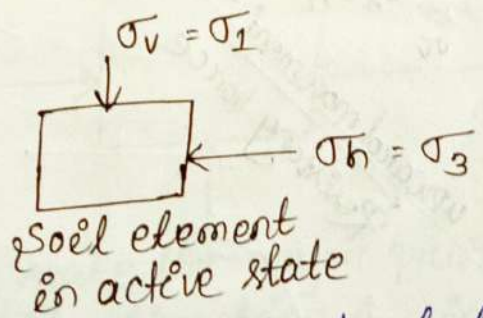 σv = σ1
σh = σ3
Soil element
in active state